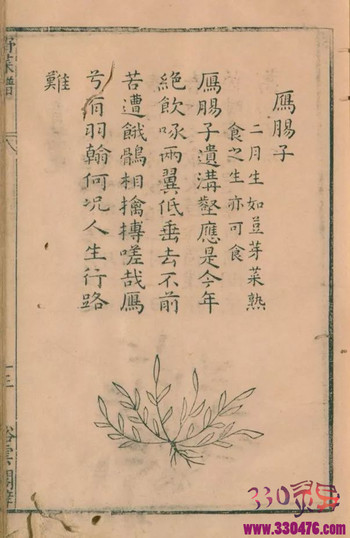 鴈腸子
二月生如荳芽菜熟
食之生亦可食
鴈腸子遺溝壑應是今年
絕飲啄兩翼低垂去不前
苦遭餓鶻相擒搏嗟哉鴈
兮有羽翰何況人生行路
難
野菜譜
八
十三
330
www.330476.com